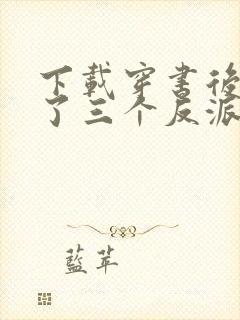 下載穿書後
了三个反派
藍苹